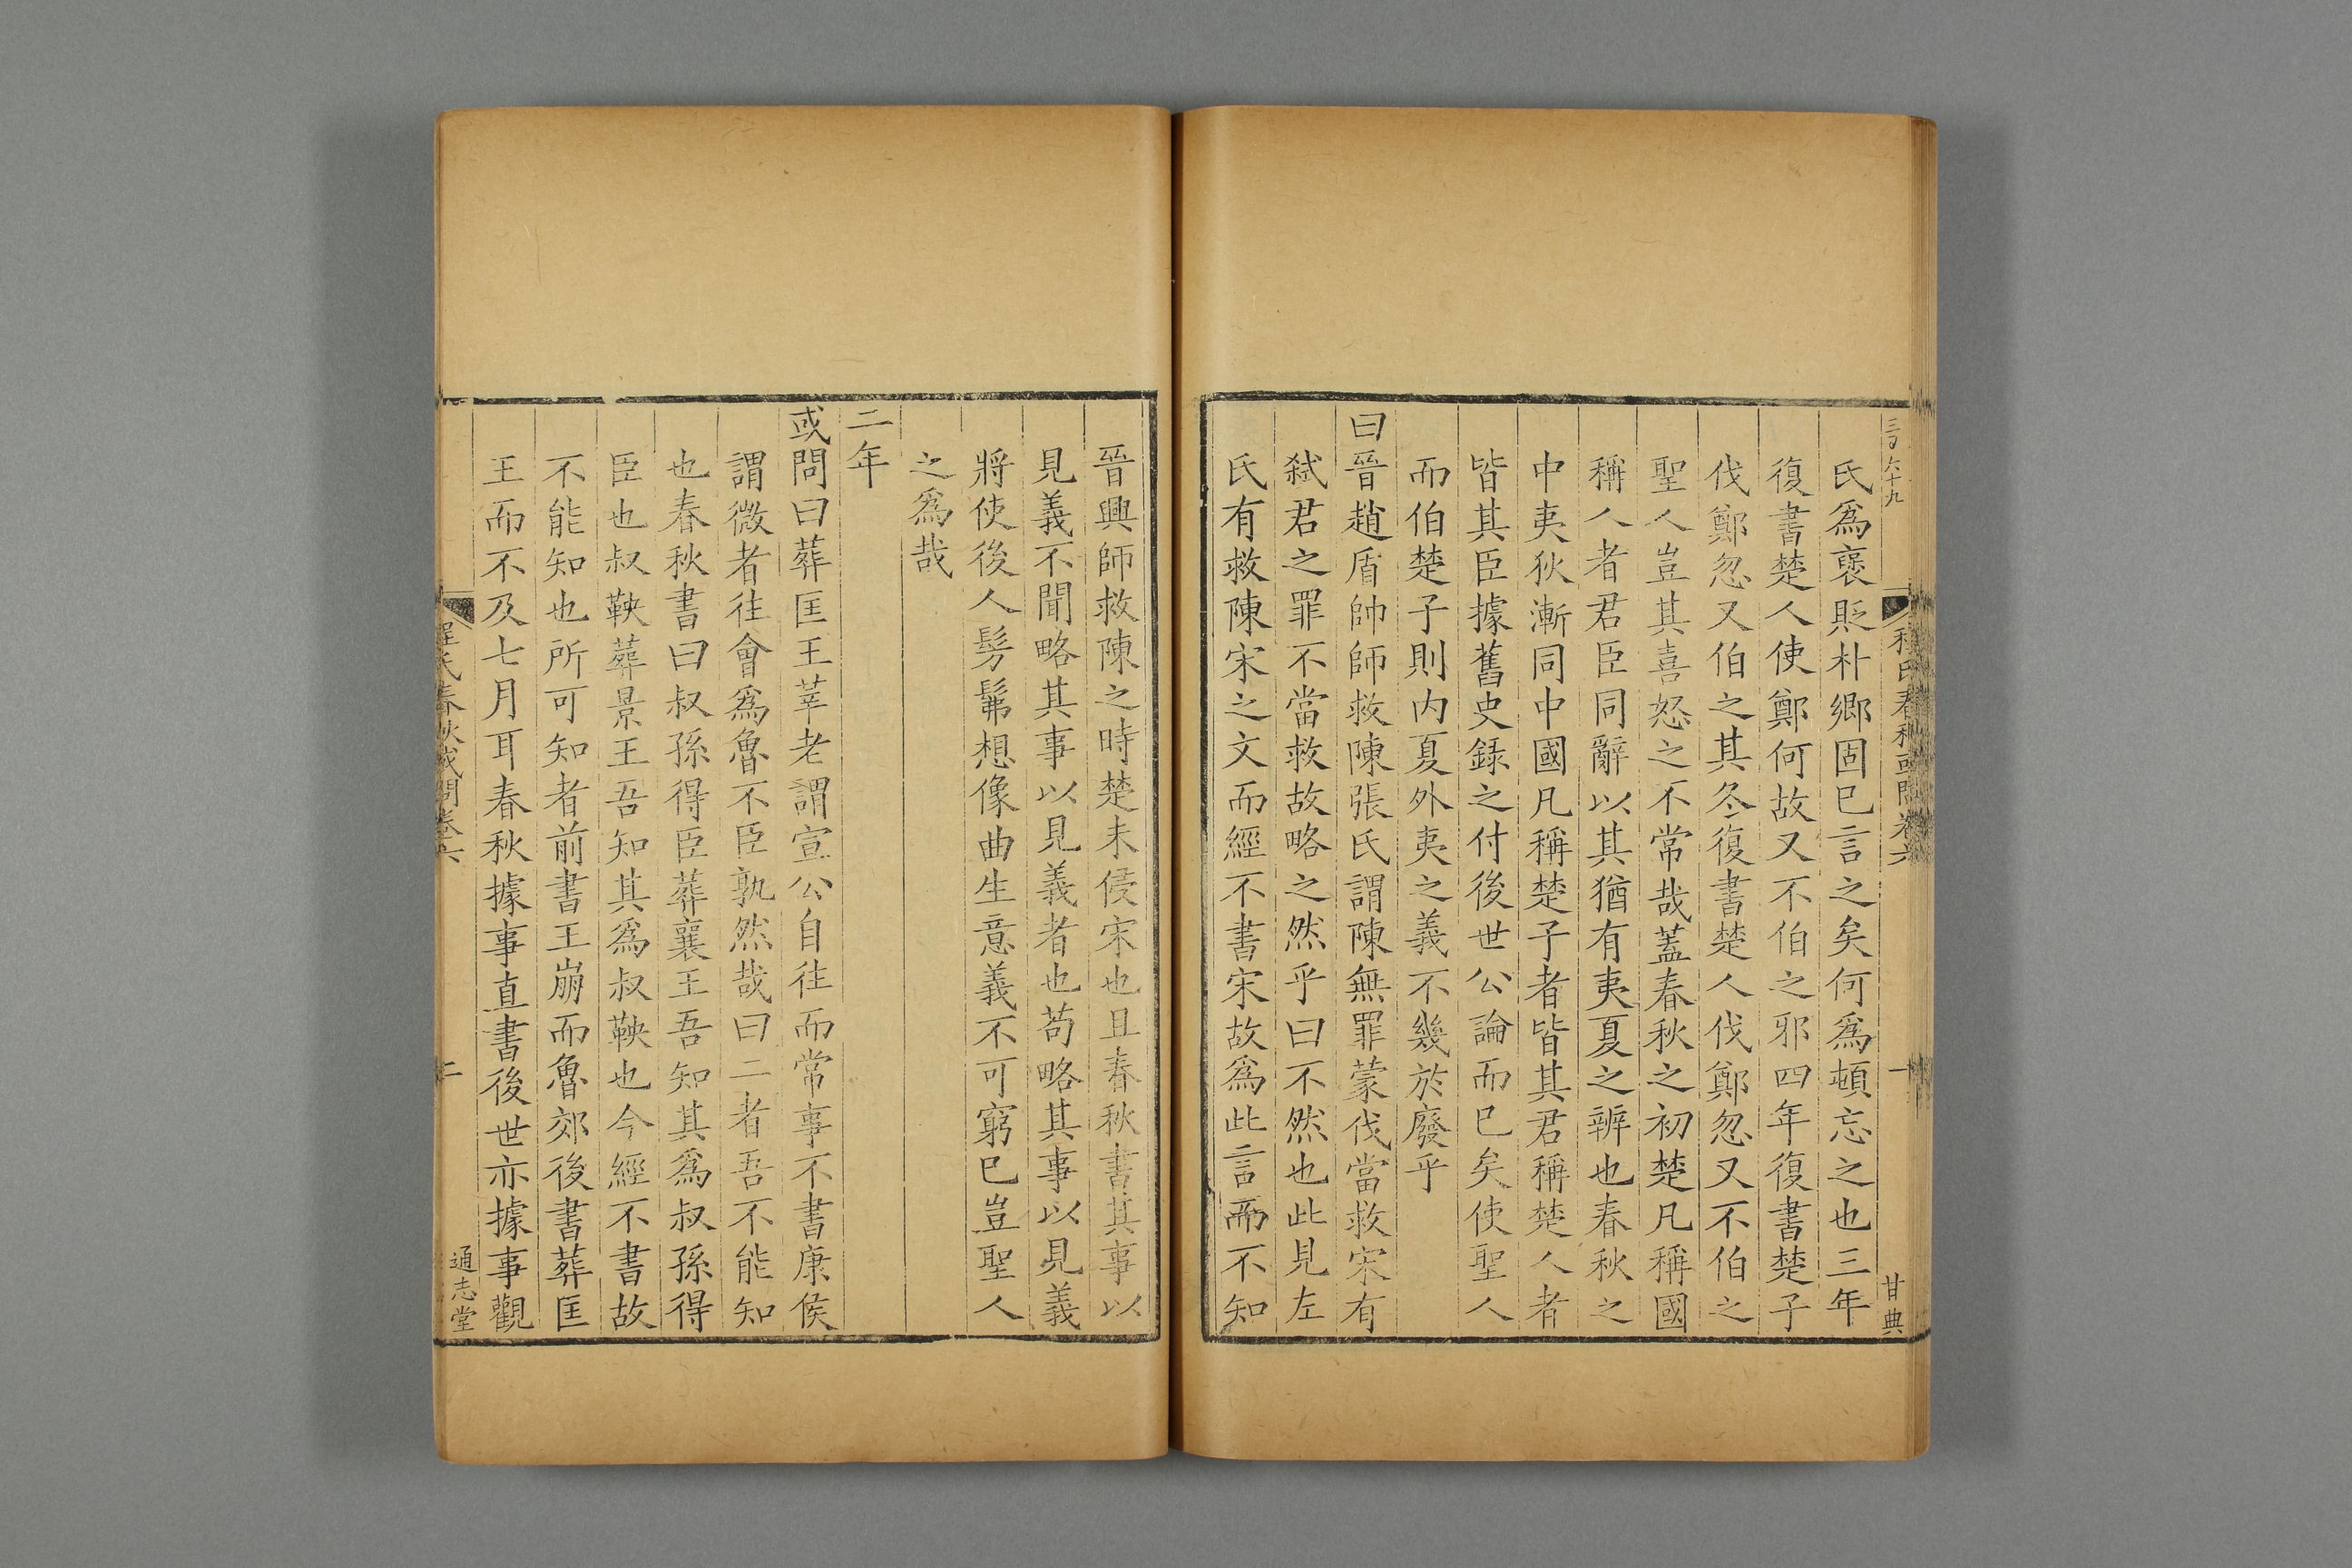 三百六十九
程氏春秋或問卷六
一
甘典
氏爲褒貶朴鄉固巳言之矣何爲頓忘之也三年
復書楚人使鄭何故又不伯之邪四年復書楚子
伐鄭忽又伯之其冬復書楚人伐鄭忽又不伯之
聖人豈其喜怒之不常哉蓋春秋之初楚凡稱國
稱人者君臣同辭以其猶有夷夏之辨也春秋之
中夷狄漸同中國凡稱楚子者皆其君稱楚人者
皆其臣據舊史錄之付後世公論而巳矣使聖人
而伯楚子則内夏外夷之義不幾於廢乎
曰晉趙盾帥師救陳張氏謂陳無罪蒙伐當救宋有
弑君之罪不當救故略之然乎曰不然也此見左
氏有救陳宋之文而經不書宋故爲此言而不知
晉興師救陳之時楚未侵宋也且春秋書其事以
見義不聞略其事以見義者也苟略其事以見義
將使後人髣髴想像曲生意義不可窮巳豈聖人
之爲哉
二年
或問曰葬匡王莘老謂宣公自往而常事不書康侯
謂微者往會爲魯不臣孰然哉曰二者吾不能知
也春秋書曰叔孫得臣葬襄王吾知其爲叔孫得
臣也叔鞅葬景王吾知其爲叔鞅也今經不書故
不能知也所可知者前書王崩而魯郊後書葬匡
王而不及七月耳春秋據事直書後世亦據事觀
程氏春秋或問卷六
二
通志堂